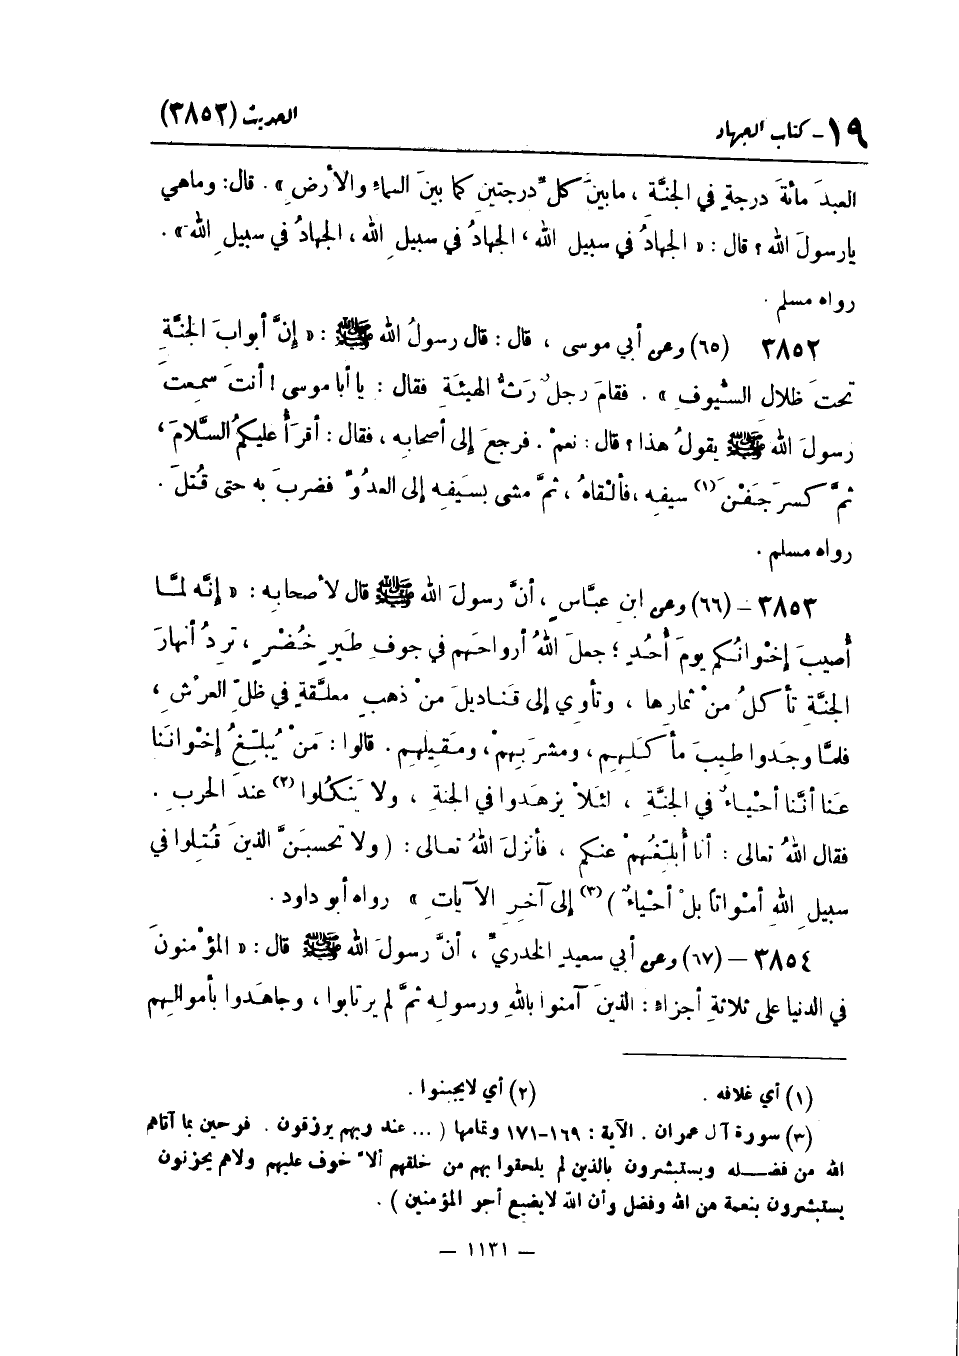 ١٩ - كتاب الجهاد الحديث (٣٨٥٢)
العبدَ مائةَ درجةٍ في الجنَّة ، مابينَ كلِّ درجتينِ كما بينَ السماءِ والأرضِ » . قال: وماهي
يارسولَ الله ؟ قال : « الجهادُ في سبيل الله ، الجهادُ في سبيلِ الله ، الجهادُ في سبيلِ الله » .
رواه مسلم .
٣٨٥٢ (٦٥) وعن أبي موسى ، قال : قال رسولُ الله ﷺ : « إنَّ أبوابَ الجنَّةِ
تحتَ ظلالِ السُّيوفِ » . فقامَ رجلٌ رَثُّ الهيئَةِ فقال : يا أبا موسى ! أنتَ سمِعتَ
رسولَ الله ﷺ يقولُ هذا ؟ قال : نعمْ . فرجعَ إلى أصحابِه ، فقال : أقرَأُ عليكمُ السَّلامَ ،
ثمَّ كسرَ جَفْنَ (١) سيفِه ، فألْقاهُ ، ثمَّ مشى بسَيفِه إلى العدُوِّ فضربَ به حتى قُتلَ .
رواه مسلم .
٣٨٥٣ – (٦٦) وعن ابنِ عبَّاسٍ ، أنَّ رسولَ الله ﷺ قال لأصحابِه : « إنَّه لمَّا
أُصيبَ إخْوانُكم يومَ أُحُدٍ ؛ جعلَ اللهُ أرواحَهم في جوفِ طَيرٍ خُضْرٍ ، تردُ أنهارَ
الجنَّةِ تأكلُ منْ ثمارِها ، وتأوي إلى قَناديلَ منْ ذهبٍ معلَّقةٍ في ظلِّ العرْشِ ،
فلمَّا وجَدوا طيبَ مأكلِهم ، ومشرَبِهمْ ، ومَقيلِهم . قالوا : مَنْ يُبلِّغُ إخْوانَنا
عنا أنَّنا أحْياءٌ في الجنَّةِ ، لئلاَّ يزهَدوا في الجنةِ ، ولا يَنكُلوا (٢) عندَ الحربِ .
فقال اللهُ تعالى : أنا أُبلِّغُهمْ عنكم ، فأنزلَ اللهُ تعالى : ( ولا تحسبَنَّ الذينَ قُتلوا في
سبيلِ اللهِ أمْواتاً بلْ أحْياءٌ ) (٣) إلى آخرِ الآياتِ » رواه أبو داود .
٣٨٥٤ – (٦٧) وعن أبي سعيدٍ الخدريِّ ، أنَّ رسولَ الله ﷺ قال : « المؤمنونَ
في الدنيا على ثلاثةِ أجزاءٍ : الذينَ آمنوا باللهِ ورسولِه ثمَّ لم يرتابوا ، وجاهَدوا بأموالِهم
(١) أي غلافه . (٢) أي لايجبنوا .
(٣) سورة آل عمران . الآية : ١٦٩-١٧١ وتمامها ( ... عند ربهم يرزقون . فرحين بما آتاهم
الله من فضله ويستبشرون بالذين لم يلحقوا بهم من خلفهم ألا خوف عليهم ولاهم يحزنون
يستبشرون بنعمة من الله وفضل وأن الله لايضيع أجر المؤمنين ) .
– ١١٣١ –